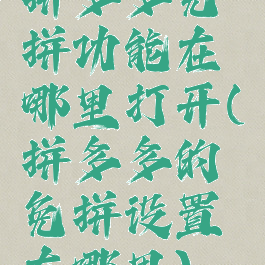 拼多多免
拼功能在
哪里打开(
拼多多的
免拼设置
在哪里)